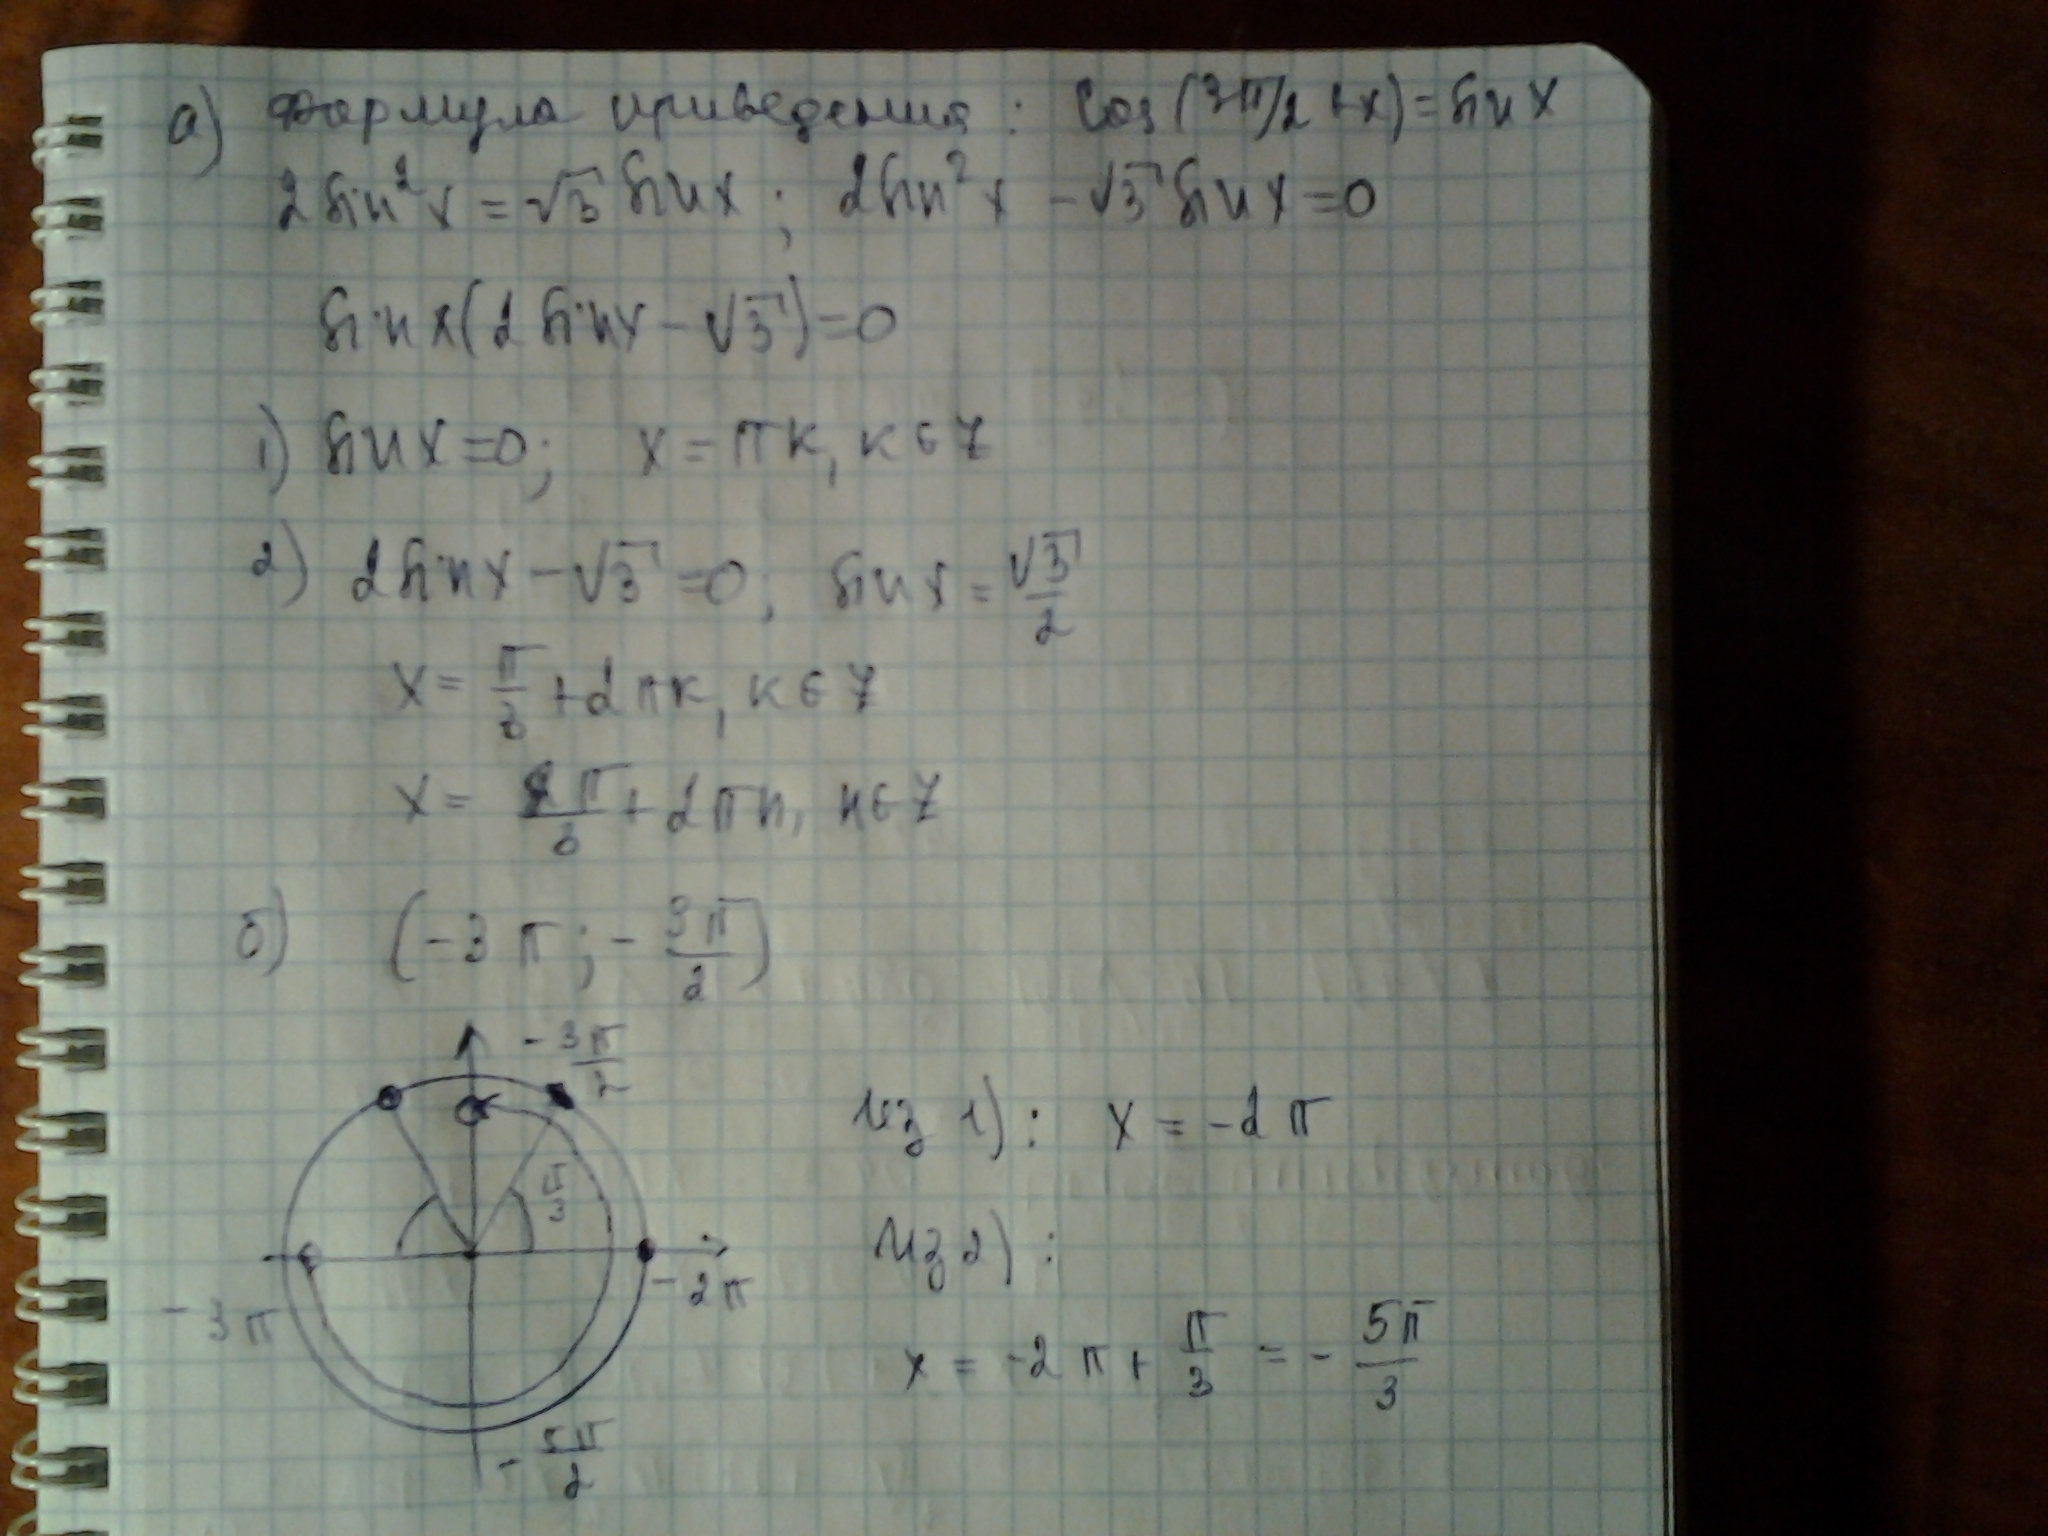 а) Формула приведения: cos(3π/2+x)=sin x
2sin²x=√3 sin x; 2sin²x-√3 sin x=0
sin x(2sin x-√3)=0
1) sin x=0; x=πк, к∈Z
2) 2sin x-√3=0; sin x=√3/2
x=π/3+2πк, к∈Z
x=2π/3+2πn, n∈Z
б) (-3π;-3π/2)
-3π/2
Из 1): x=-2π
π/3
Из 2):
-2π
-3π
x=-2π+π/3=-5π/3
-5π/2